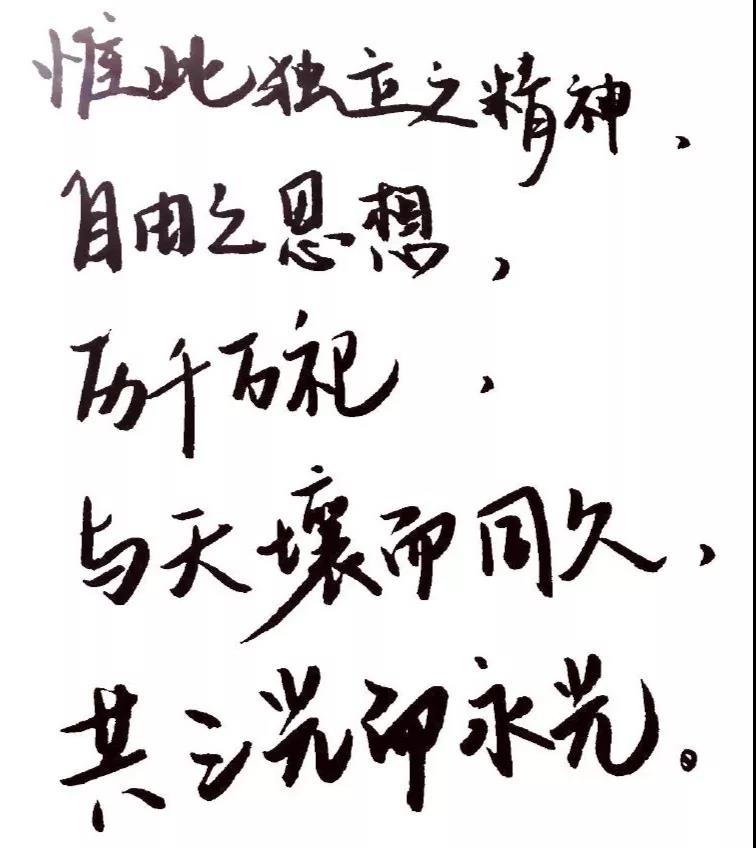 惟此独立之精神、
自由之思想，
历千万祀，
与天壤而同久，
共三光而永光。